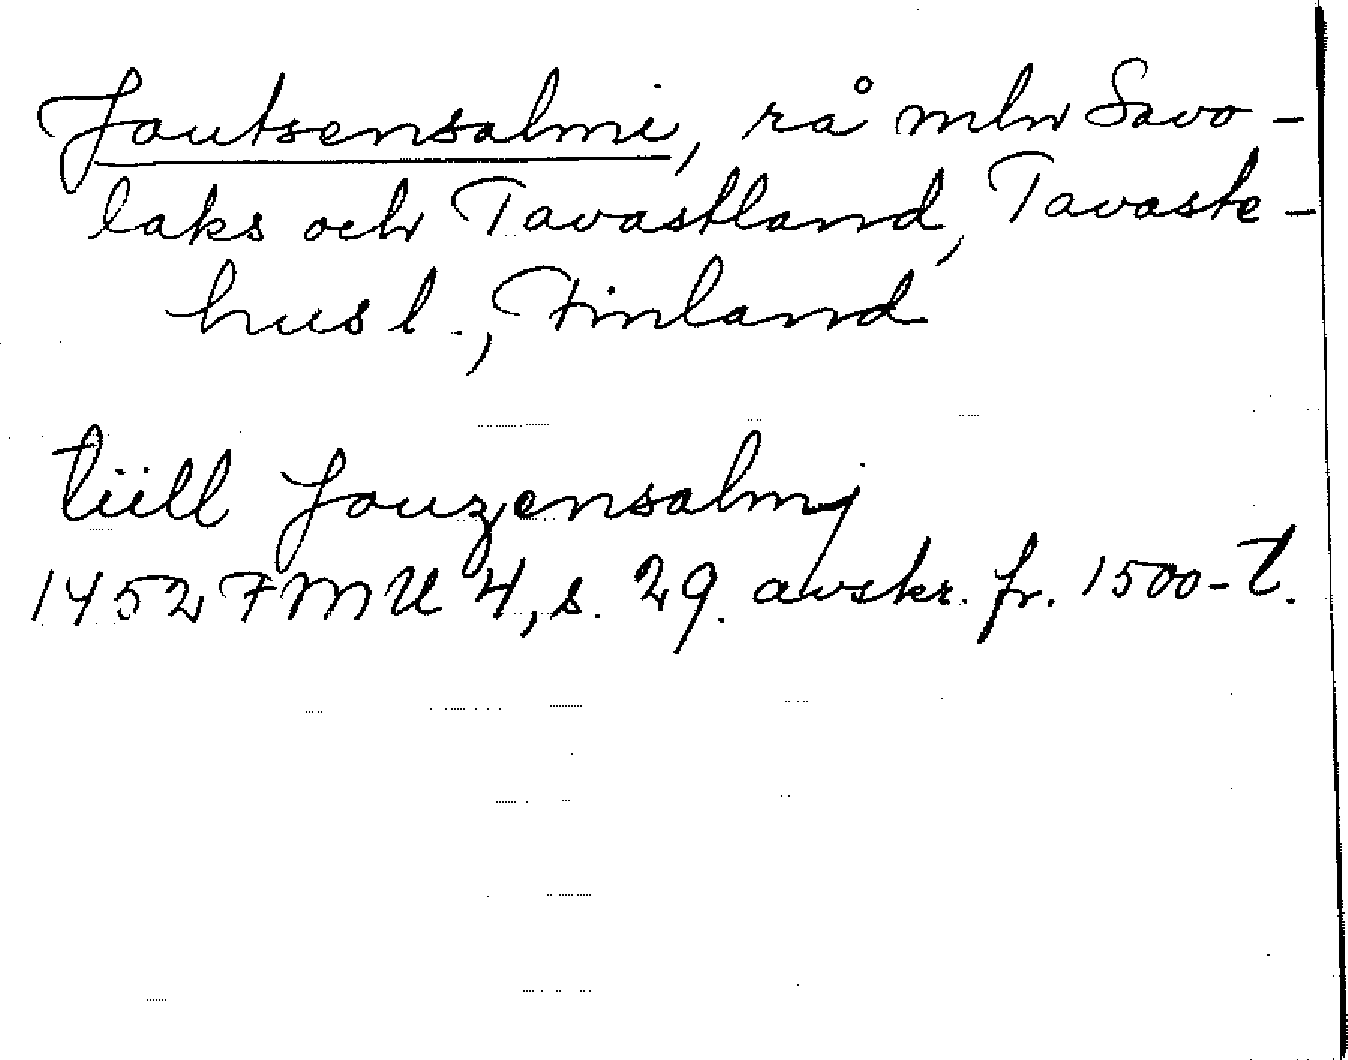 Joutsensalmi, rå mln Savo-
laks och Tavastland, Tavaste-
husl., Finland
tiill Jouzensalmj
1452 FMU 4, s. 29. avskr. fr. 1500-t.